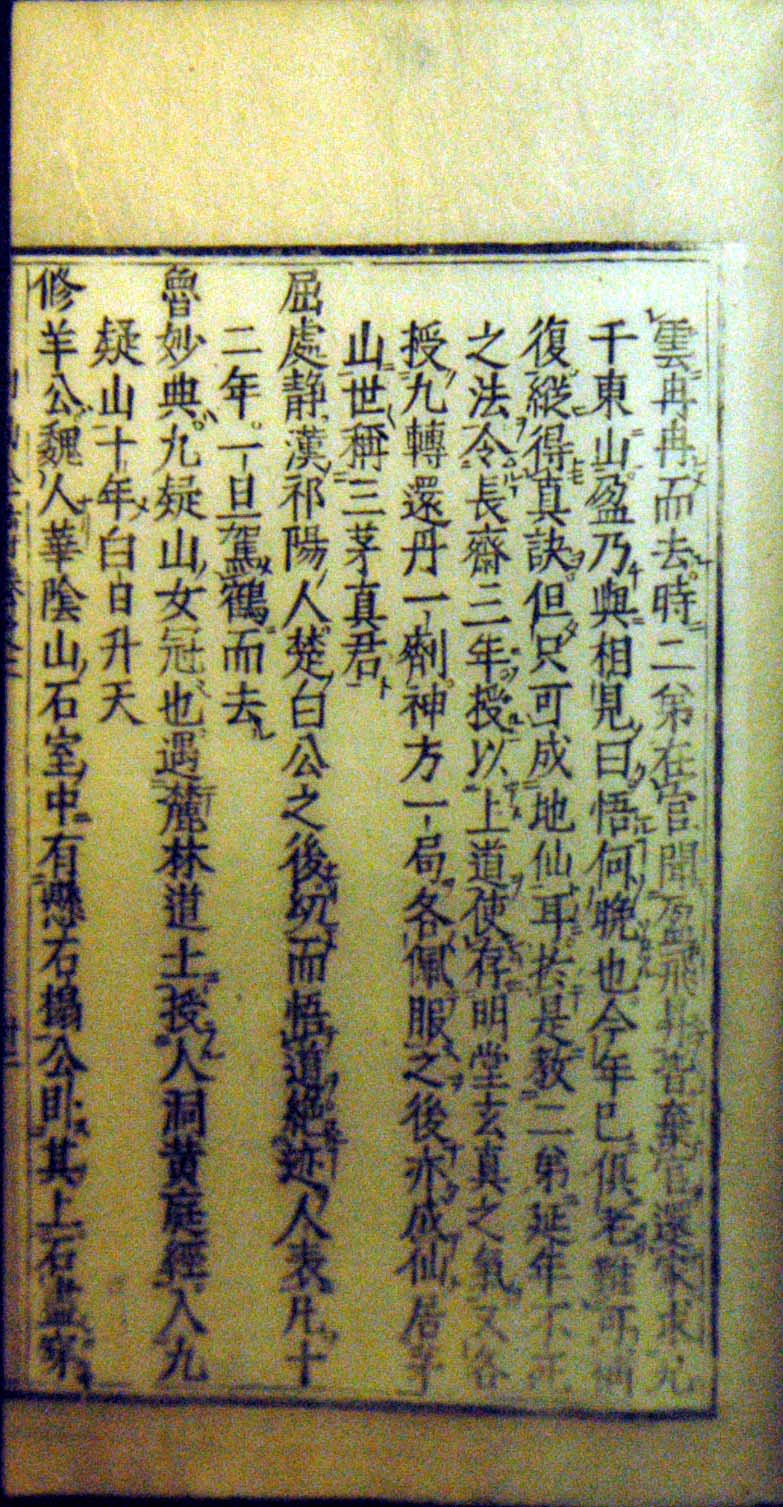 雲冉冉而去時二弟在官聞盈飛昇皆棄官還家求兄
于東山盈乃與相見曰悟何晚也今年已俱老難可補
復縱得真訣但只可成地仙耳於是教二弟延年不死
之法令長齋三年授以上道使存明堂玄真之氣又各
授九轉還丹一劑神方一局各佩服之後亦成仙居茅
山世稱三茅真君
屈處靜漢祁陽人楚白公之後幼而悟道絕迹人表凡十
二年一旦駕鶴而去
魯妙典九疑山女冠也遇麓林道士授人洞黃庭經入九
疑山十年白日升天
修羊公魏人華陰山石室中有懸石榻公臥其上石盡穿